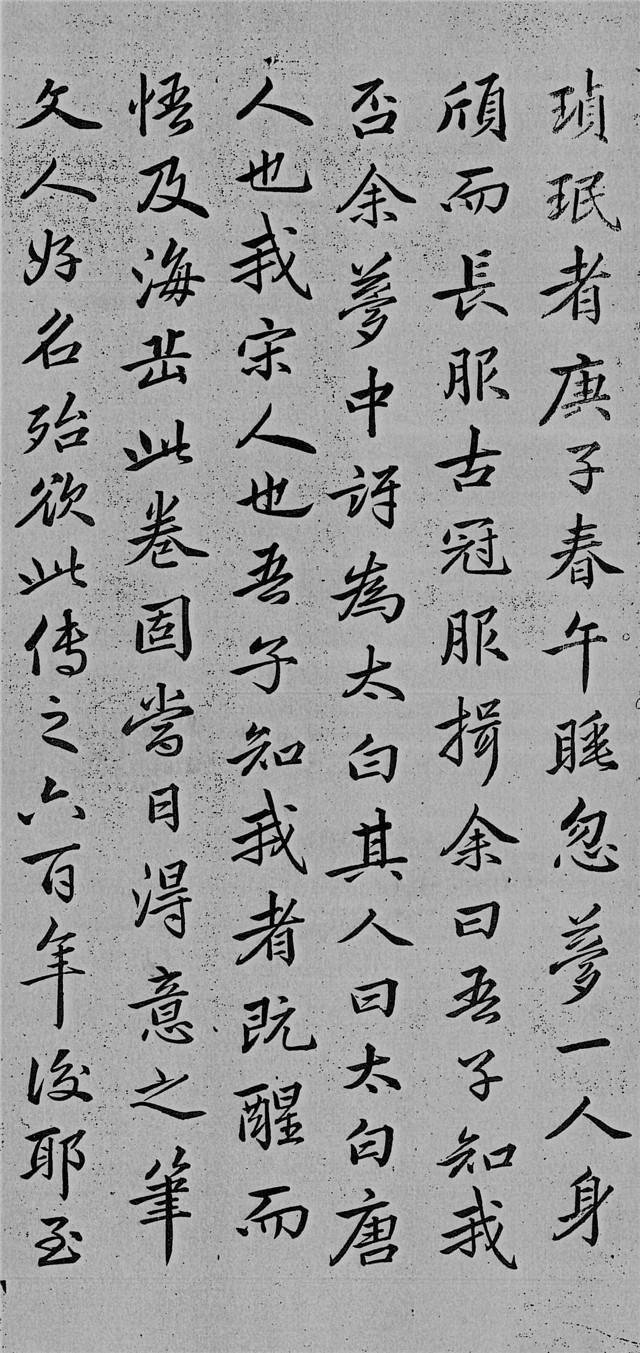 瑱珉者庚子春午睡忽夢一人身
頎而長服古冠服揖余曰吾子知我
否余夢中訝為太白其人曰太白唐
人也我宋人也吾子知我者既醒而
悟及海岳此卷固當日得意之筆
文人好名殆欲此傳之六百年後耶至